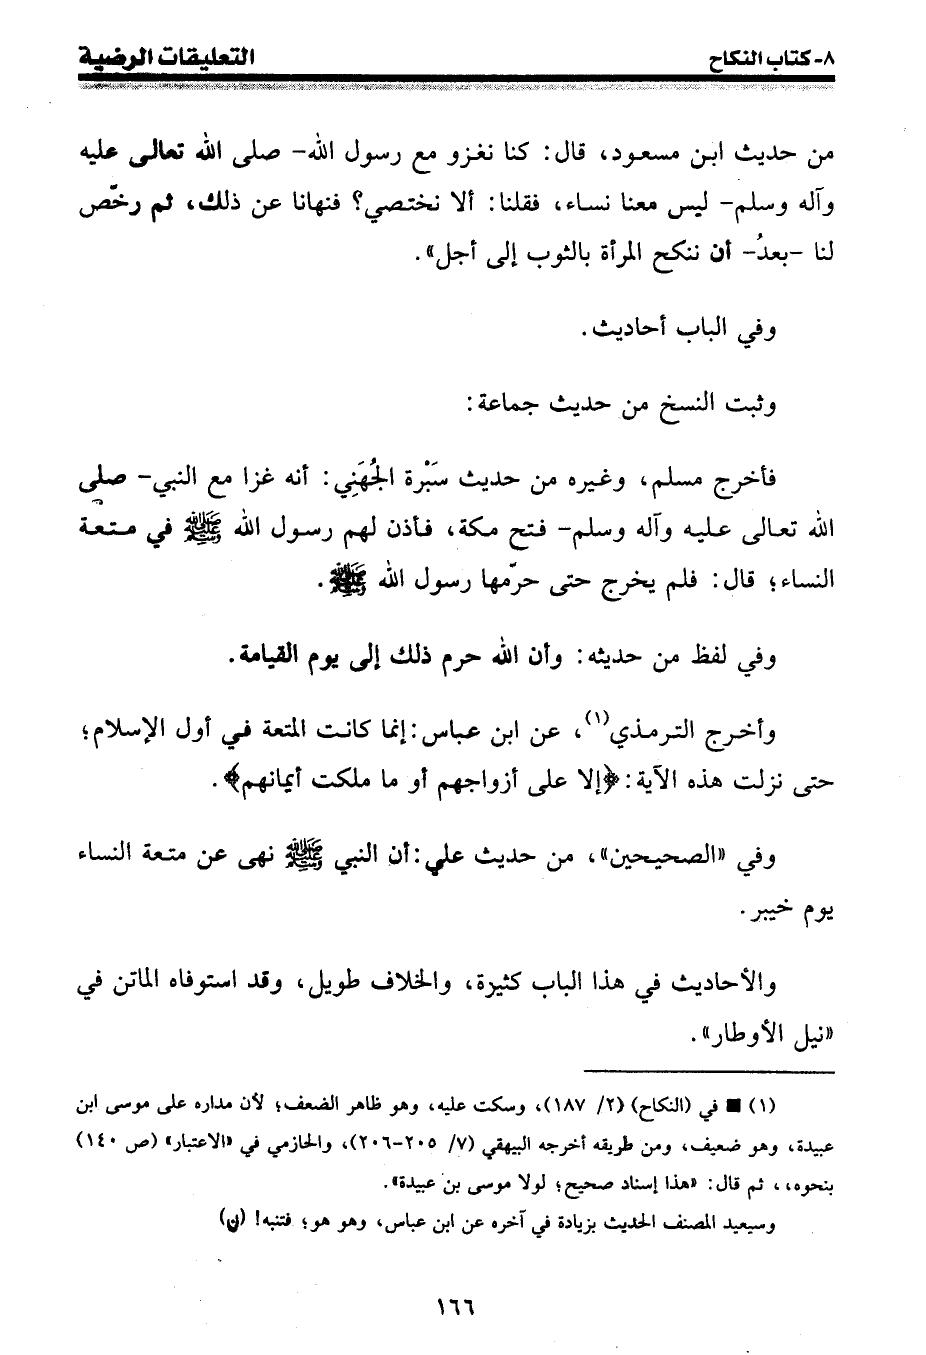 ٨- كتاب النكاح
التعليقات الرضية
من حديث ابن مسعود، قال: كنا نغزو مع رسول الله- صلى الله تعالى عليه
وآله وسلم- ليس معنا نساء، فقلنا: ألا نختصي؟ فنهانا عن ذلك، ثم رخّص
لنا -بعدُ- أن ننكح المرأة بالثوب إلى أجل».
وفي الباب أحاديث.
وثبت النسخ من حديث جماعة:
فأخرج مسلم، وغيره من حديث سَبْرة الجُهَنِي: أنه غزا مع النبي- صلى
الله تعالى عليه وآله وسلم- فتح مكة، فأذن لهم رسول الله ﷺ في متعة
النساء؛ قال: فلم يخرج حتى حرّمها رسول الله ﷺ.
وفي لفظ من حديثه: وأن الله حرم ذلك إلى يوم القيامة.
وأخرج الترمذي(١)، عن ابن عباس: إنما كانت المتعة في أول الإسلام؛
حتى نزلت هذه الآية: ﴿إلا على أزواجهم أو ما ملكت أيمانهم﴾.
وفي «الصحيحين»، من حديث علي: أن النبي ﷺ نهى عن متعة النساء
يوم خيبر.
والأحاديث في هذا الباب كثيرة، والخلاف طويل، وقد استوفاه الماتن في
«نيل الأوطار».
(١) ■ في (النكاح) (٢/ ١٨٧)، وسكت عليه، وهو ظاهر الضعف؛ لأن مداره على موسى ابن
عبيدة، وهو ضعيف، ومن طريقه أخرجه البيهقي (٧/ ٢٠٥-٢٠٦)، والحازمي في «الاعتبار» (ص ١٤٠)
بنحوه،، ثم قال: «هذا إسناد صحيح؛ لولا موسى بن عبيدة».
وسيعيد المصنف الحديث بزيادة في آخره عن ابن عباس، وهو هو؛ فتنبه! (ن)
١٦٦